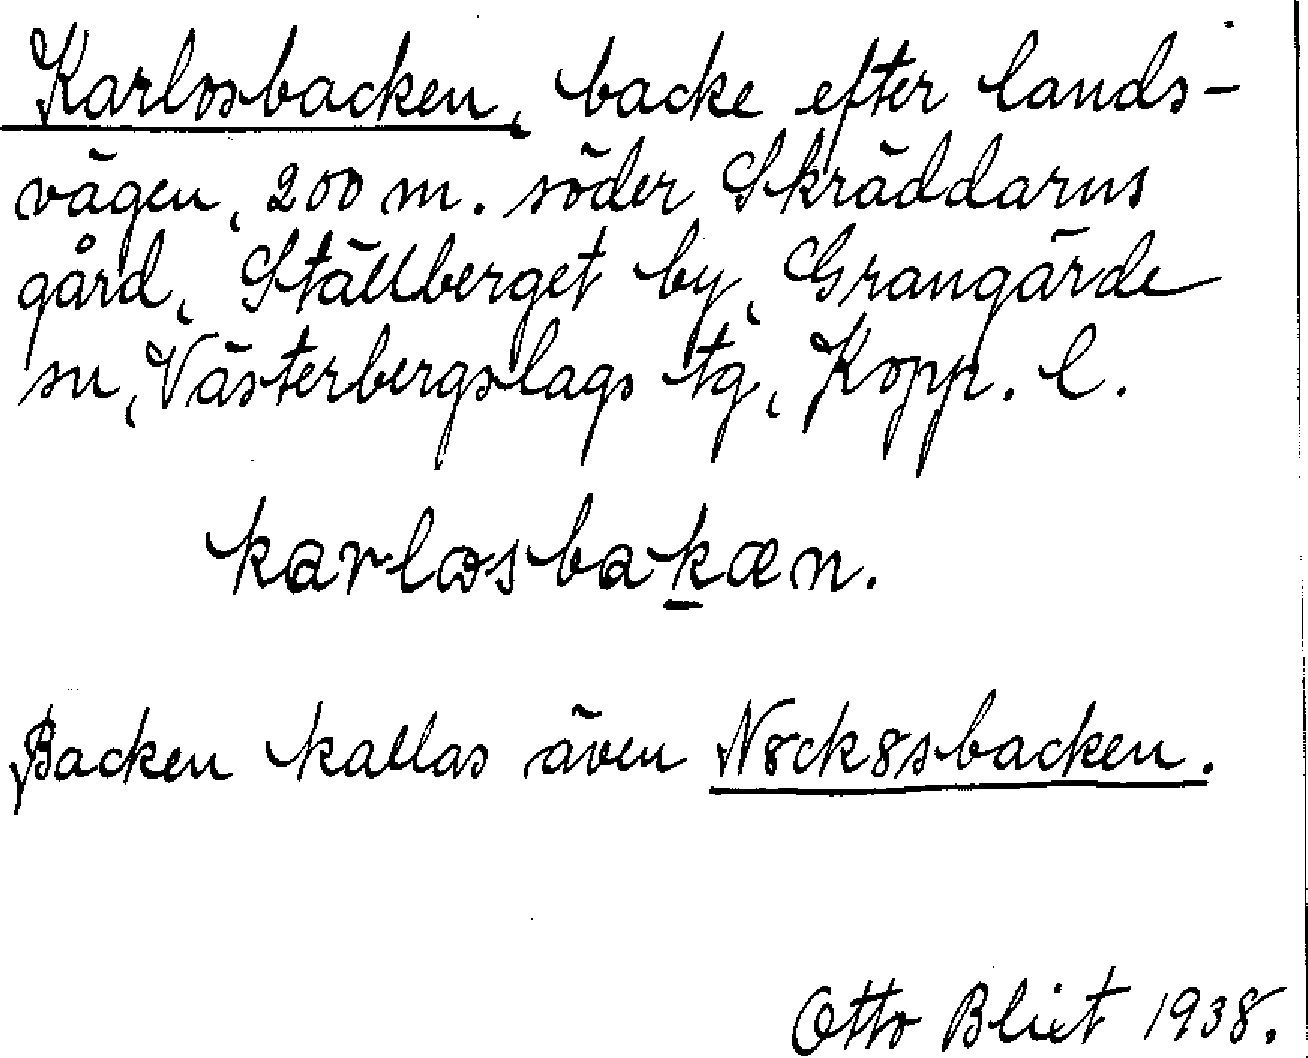 Karlosbacken, backe efter lands-
vägen, 200 m. söder Skräddarns
gård, Ställberget by, Grangärde
sn, Västerbergslags tg, Kopp. l.
karlosbakæn.
Backen kallas även Nockosbacken.
Otto Blixt 1938.